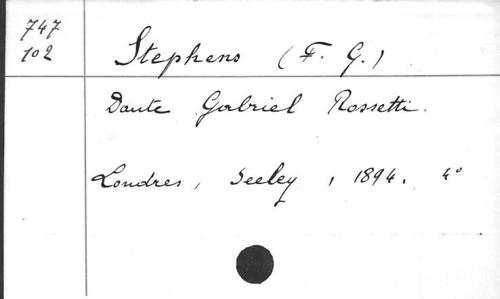 747
102
Stephens (F. G.)
Dante Gabriel Rossetti.
Londres, Seeley, 1894. 4°